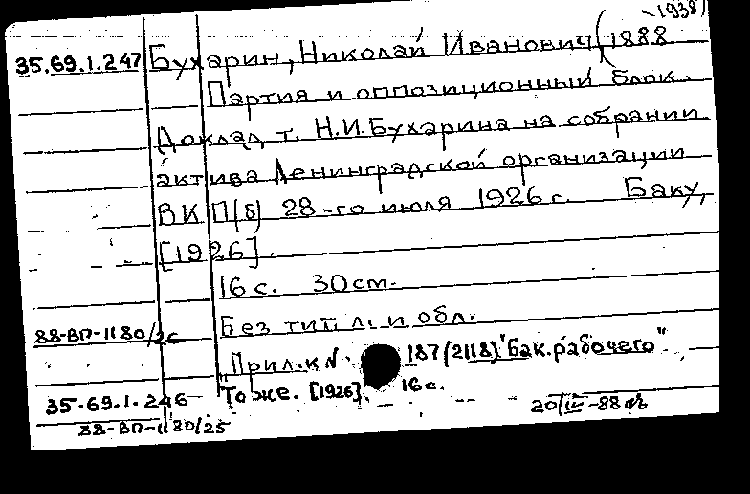 -1938)
35.69.1.247 Бухарин, Николай Иванович (1888
Партия и оппозиционный блок.
Доклад т. Н.И. Бухарина на собрании
актива Ленинградской организации
ВКП(б) 28-го июля 1926 г. Баку,
[1926]
16 с. 30 см.
Без тит. л. и обл.
88-ВП-1180/2с
"Прил. к № 187 (2118) "Бак. рабочего"
То же. [1926]. 16 с.
35.69.1.246
20/IV-88
88-ВП-1180/25